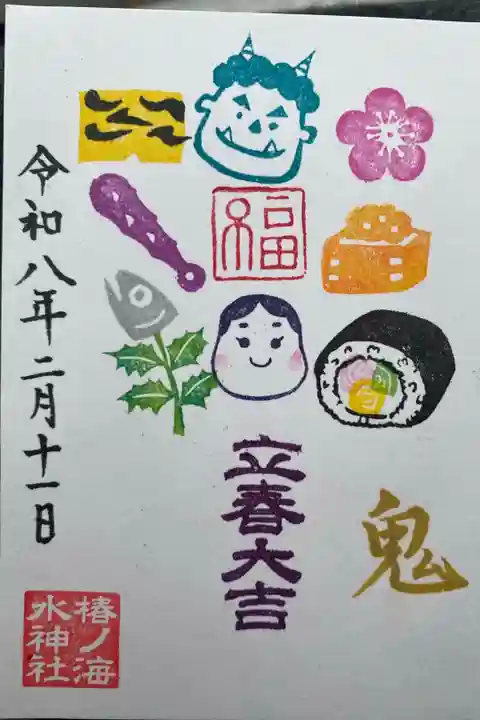 福
立春大吉
鬼
令和八年二月十一日
椿ノ海
水神社